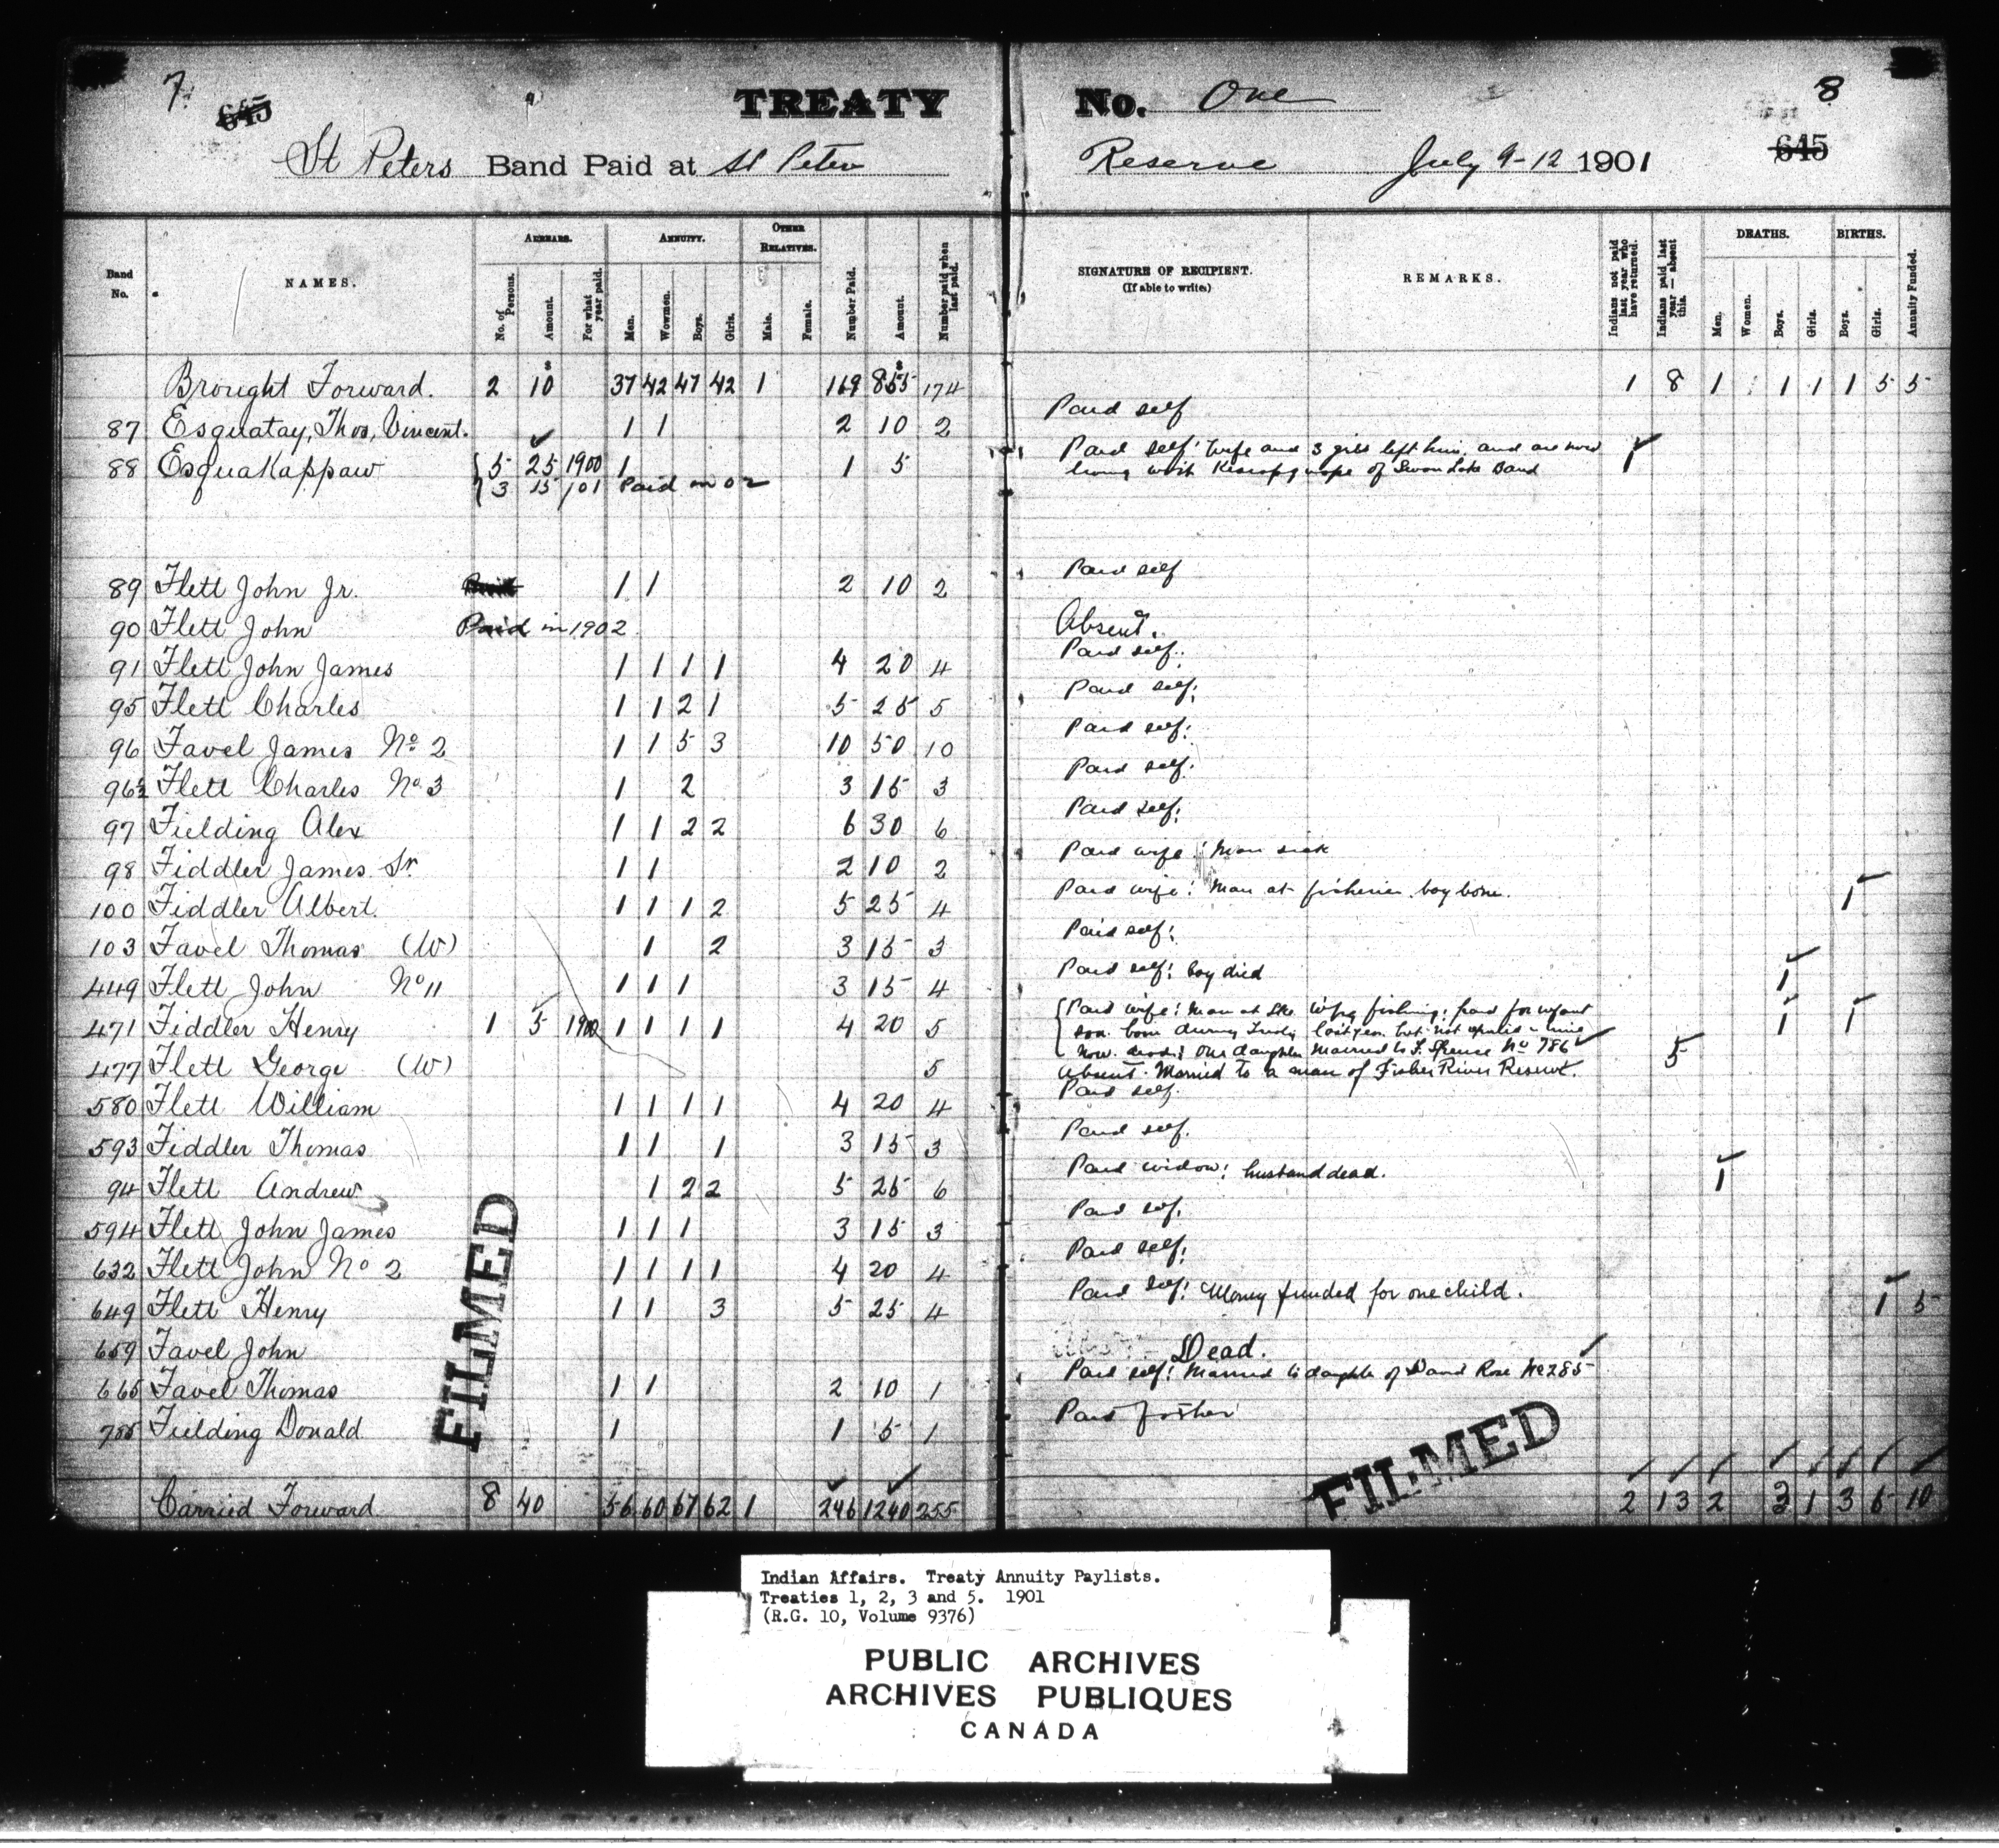 7 645 TREATY No. One 8
St Peters Band Paid at St Peter Reserve July 9-12 1901 645
Band No. NAMES. ARREARS. No. of Persons. Amount. For what year paid. ANNUITY. Men. Wowmen. Boys. Girls. OTHER RELATIVES. Male. Female. Number Paid. Amount. Number paid when last paid. SIGNATURE OF RECIPIENT. (If able to write.) REMARKS. Indians not paid last year who have returned. Indians paid last year — absent this. DEATHS. Men. Women. Boys. Girls. BIRTHS. Boys. Girls. Annuity Funded.
Brought Forward. 2 10 37 42 47 42 1 169 855 174 1 8 1 1 1 1 5 5
87 Esquatay, Thos, Vincent. 1 1 2 10 2 Paid self
88 Esquakappaw 5 25 1900 1 1 5 Paid self! Wife and 3 girls left him, and are now 1
3 15 /01 Paid in 02 living with of Swan Lake Band
89 Flett John Jr. 1 1 2 10 2 Paid self
90 Flett John Paid in 1902 Absent.
91 Flett John James 1 1 1 1 4 20 4 Paid self.
95 Flett Charles 1 1 2 1 5 25 5 Paid self!
96 Favel James No 2 1 1 5 3 10 50 10 Paid self!
96½ Flett Charles No 3 1 2 3 15 3 Paid self!
97 Fielding Alex 1 1 2 2 6 30 6 Paid self!
98 Fiddler James Sr 1 1 2 10 2 Paid wife! Man sick
100 Fiddler Albert. 1 1 1 2 5 25 4 Paid wife! Man at fisheries. boy born. 1
103 Favel Thomas (W) 1 2 3 15 3 Paid self!
449 Flett John No 11 1 1 1 3 15 4 Paid self! boy died 1
471 Fiddler Henry 1 5 1900 1 1 1 1 4 20 5 Paid wife! Man at Lke Wpg fishing; paid for infant 1 1
son born during last year but not
now dead! One daughter married to F. Spence No 786
477 Flett George (W) 5 Absent. Married to a man of Fisher River Reserve. 5
580 Flett William 1 1 1 1 4 20 4 Paid self.
593 Fiddler Thomas 1 1 1 3 15 3 Paid self.
94 Flett Andrew 1 2 2 5 25 6 Paid widow! husband dead. 1
594 Flett John James 1 1 1 3 15 3 Paid self.
632 Flett John No 2 1 1 1 1 4 20 4 Paid self!
649 Flett Henry 1 1 3 5 25 4 Paid self! Money funded for one child. 1 5
659 Favel John Dead.
665 Favel Thomas 1 1 2 10 1 Paid self! Married to daughter of David Rose No 285
785 Fielding Donald 1 1 5 1 Paid father
Carried Forward. 8 40 56 60 67 62 1 246 1240 255 2 13 2 3 1 3 6 10
FILMED
FILMED
Indian Affairs. Treaty Annuity Paylists.
Treaties 1, 2, 3 and 5. 1901
(R.G. 10, Volume 9376)
PUBLIC ARCHIVES
ARCHIVES PUBLIQUES
CANADA